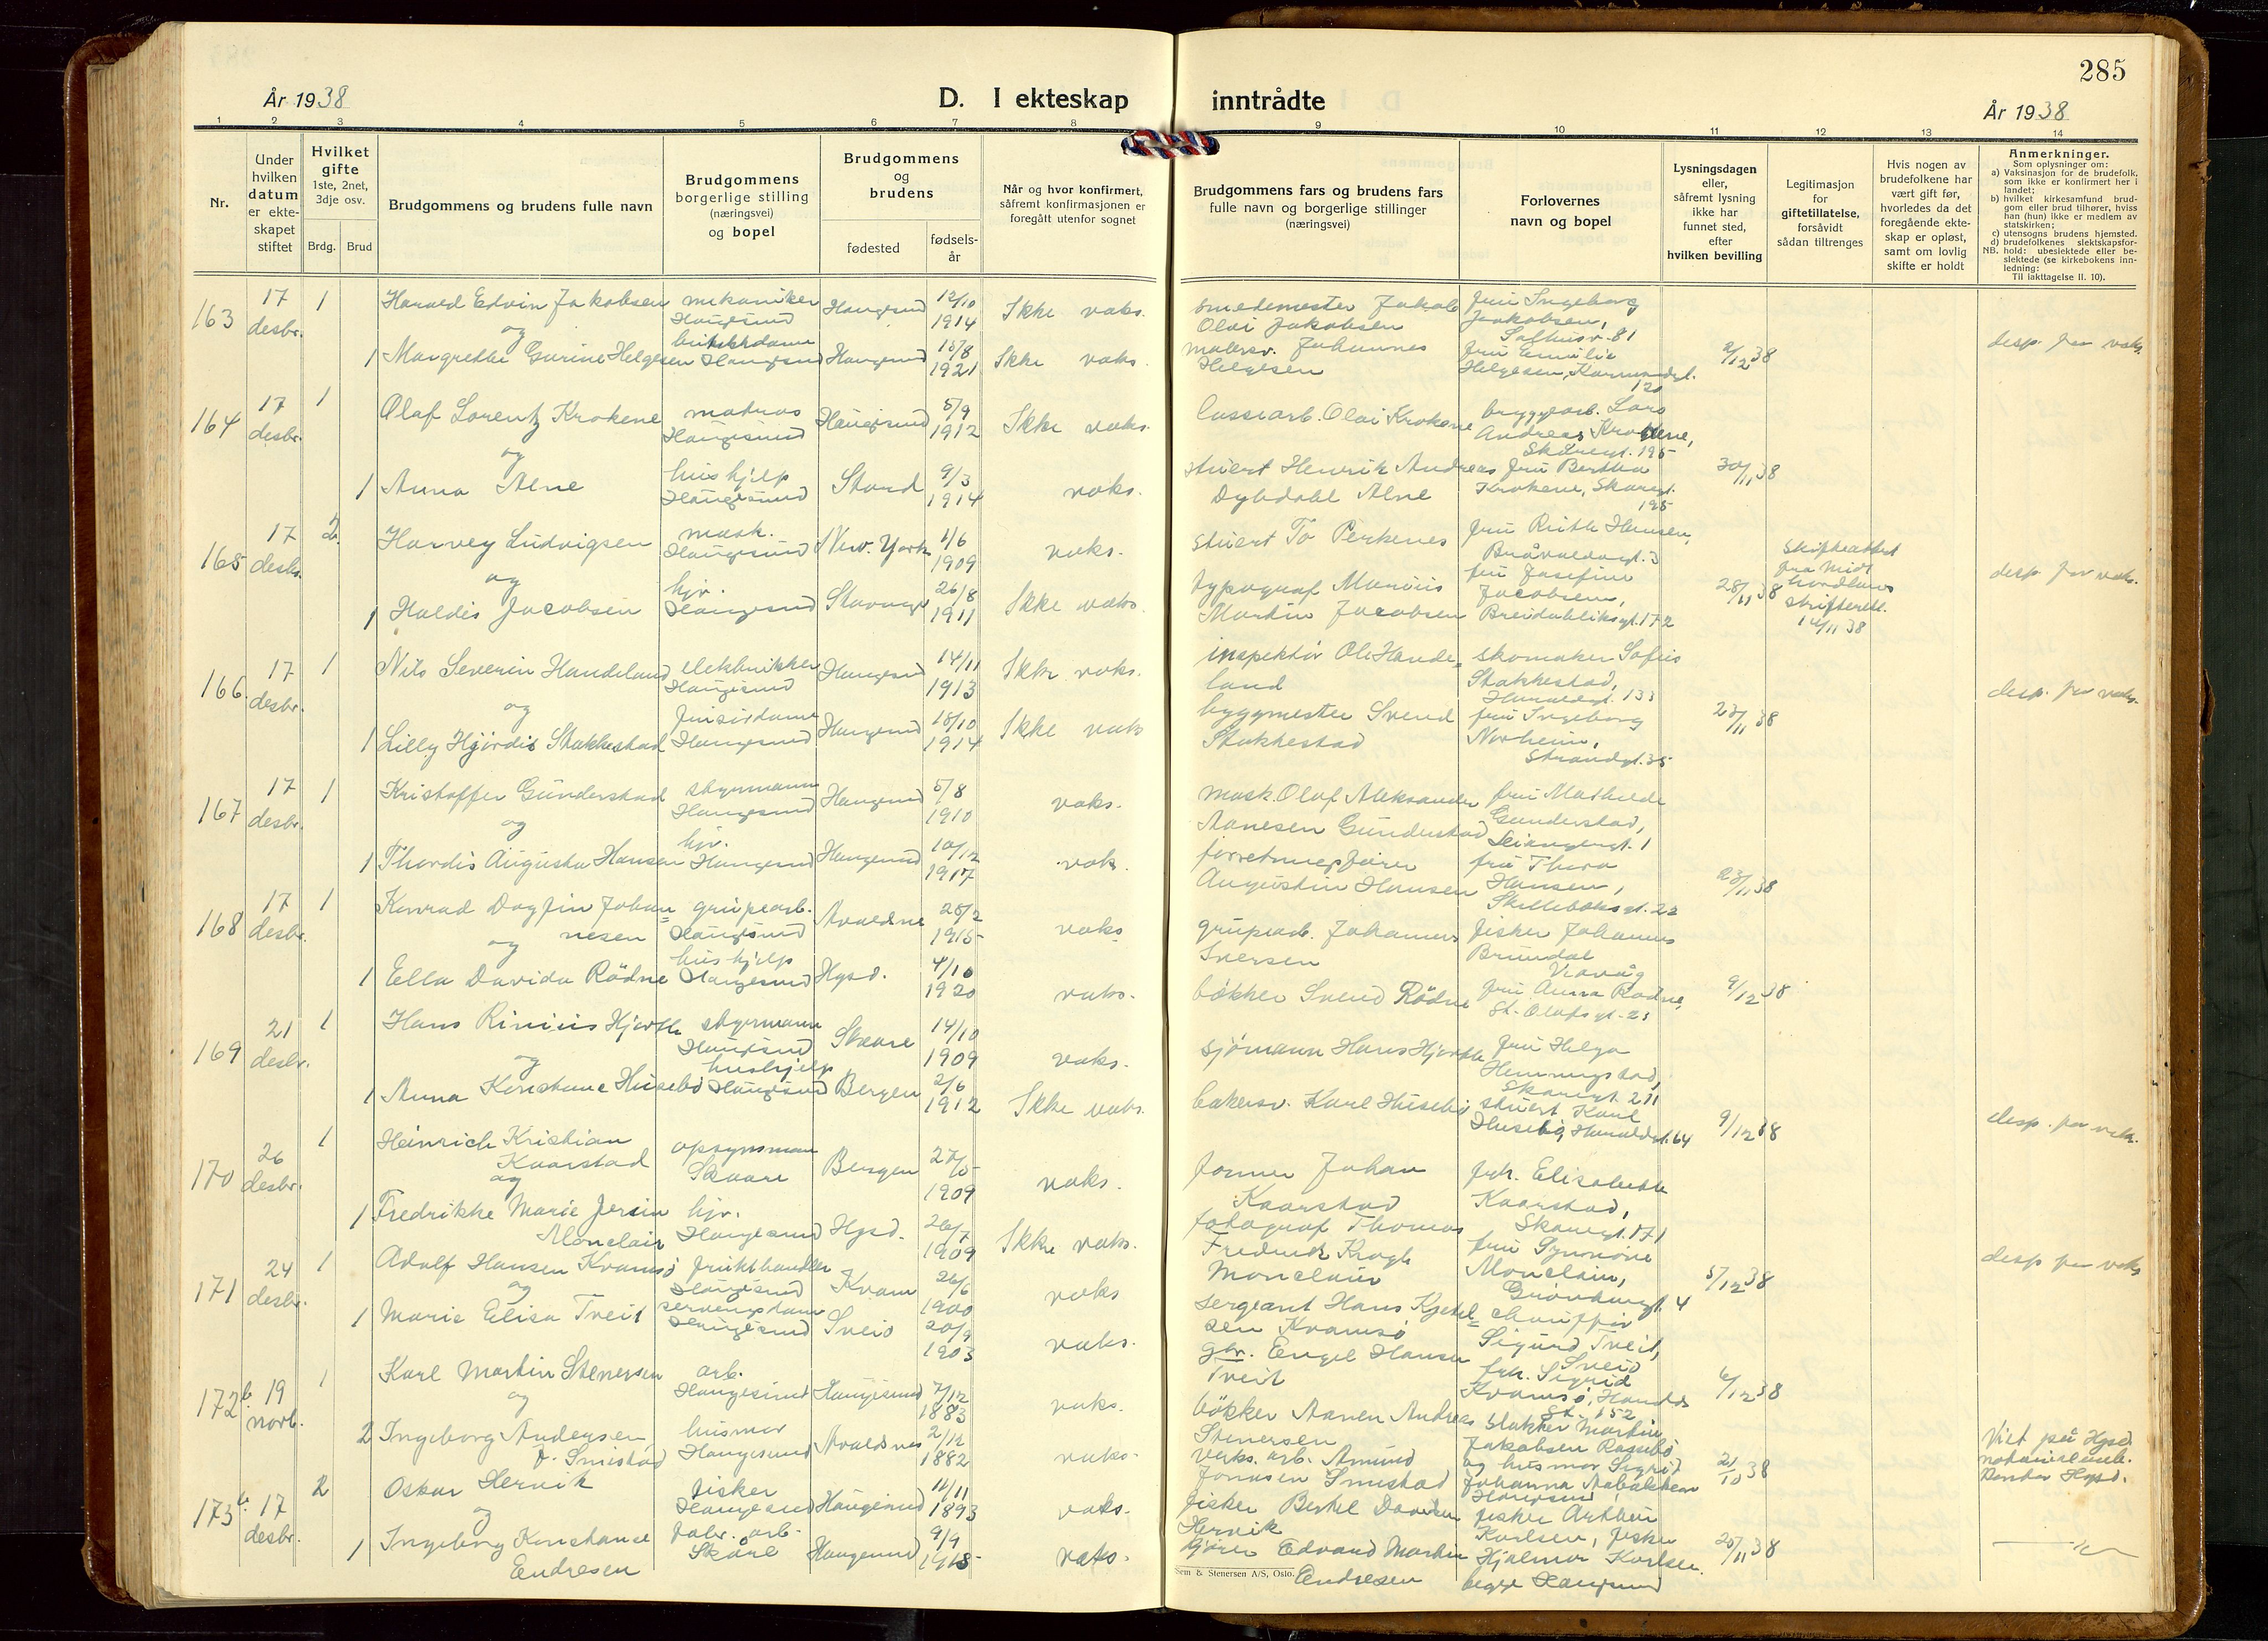 285
År 1938
D. I ekteskap
inntrådte
År 1938
1 2 3 4 5 6 7 8 9 10 11 12 13 14
Nr.
Under
hvilken
datum
er ekte-
skapet
stiftet
Hvilket
gifte
1ste, 2net,
3dje osv.
Brdg. Brud
Brudgommens og brudens fulle navn
Brudgommens
borgerlige stilling
(næringsvei)
og bopel
Brudgommens
og
brudens
fødested
fødsels-
år
Når og hvor konfirmert,
såfremt konfirmasjonen er
foregått utenfor sognet
Brudgommens fars og brudens fars
fulle navn og borgerlige stillinger
(næringsvei)
Forlovernes
navn og bopel
Lysningsdagen
eller,
såfremt lysning
ikke har
funnet sted,
efter
hvilken bevilling
Legitimasjon
for
giftetillatelse,
forsåvidt
sådan tiltrenges
Hvis nogen av
brudefolkene har
vært gift før,
hvorledes da det
foregående ekte-
skap er opløst,
samt om lovlig
skifte er holdt
Anmerkninger.
Som oplysninger om:
a) Vaksinasjon for de brudefolk,
som ikke er konfirmert her i
landet;
b) hvilket kirkesamfund brud-
gom eller brud tilhører, hviss
han (hun) ikke er medlem av
statskirken;
c) utensogns brudens hjemsted.
d) brudefolkenes slektskapsfor-
NB. hold: ubeslektede eller be-
slektede (se kirkebokens inn-
ledning:
Til iakttagelse II. 10).
163 17 desbr. 1 Harald Edvin Jakobsen mekaniker Haugesund Haugesund 12/10 1914 Ikke vaks.
smedemester Jakob Olai Jakobsen fru Ingeborg Jakobsen, Salhusv. 81
og
1 Margrethe Gurine Helgesen Haugesund Haugesund 15/8 1921 Ikke vaks.
malersv. Johannes Helgesen fru Emilie Helgesen, Karmsundgt. 120 2/12 38 desp. for vaks.
164 17 desbr. 1 Olaf Lorentz Krokene matros Haugesund Haugesund 5/9 1912 Ikke vaks.
lossearb. Olai Krokene bryggearb. Lars Andreas Krokene, Sk 195
og
1 Anna Alne hushjelp Haugesund Stord 9/3 1914 vaks.
stuert Henrik Andreas Dybdahl Alne fru Bertha Krokene, Skaregt. 195 30/11 38
165 17 desbr. 2. Harvey Ludvigsen mask. Haugesund New York 1/6 1909 vaks.
stuert To Perkenes fru Ruth Hansen, Bråvaldsgt. 3
og
1 Haldis Jacobsen hjv. Haugesund Stavanger 26/8 1911 Ikke vaks.
typograf Martin Jacobsen fru Josefine Jacobsen, Breidabliksgt. 172 28/11 38 Skifteattest fra Midthordland skifterett. 14/11 38 desp. for vaks.
166. 17 desbr. 1 Nils Severin Handeland elektrikker Haugesund Haugesund 14/11 1913 Ikke vaks.
inspektör Ole Handeland skomaker Sofus Stakkestad, Haraldsgt. 133
og
1 Lilly Hjördis Stakkestad frisördame Haugesund Haugesund 15/10 1914 Ikke vaks
byggmester Svend Stakkestad fru Ingeborg Norheim, Strandgt. 35 23/11 38 desp. for vaks.
167 17 desbr. 1 Kristoffer Gunderstad styrmann Haugesund Haugesund 5/8 1910 vaks.
mask. Olaf Aleksander Aanesen Gunderstad fru Mathilde Gunderstad, 1
og
1 Thordis Augusta Hansen hjv. Haugesund Haugesund 10/12 1917 vaks.
forretningsförer Augustin Hansen fru Thora Hansen, 22 23/11 38
168 17 desbr. 1 Konrad Dagfin Johannesen grubearb. Haugesund Avaldsnes 25/2 1915 vaks
grubearb. Johannes Iversen fisker Johannes Brundal Vedavåg
og
1 Ella Davida Rödne hushjelp Haugesund Hgsd. 4/10 1920 vaks.
bökker Svend Rödne fru Anna Rödne, St. Olafsgt. 23 9/12 38
169 21 desbr. 1 Hans Rinius Hjorth styrmann Haugesund Skaare 14/10 1909 vaks.
sjömann Hans Hjorth fru Helga Henningstad, Skaregt. 211
og
1 Anna Konstanse Husebö hushjelp Haugesund Bergen 2/6 1912 Ikke vaks.
bakersv. Karl Husebö stuert Karl Husebö, Haraldsgt. 64 9/12 38 desp. for vaks.
170 26 desbr. 1 Heinrich Kristian Kaarstad opsynsmann Skaare Bergen 27/5 1909 vaks.
former Johan Kaarstad frk. Elisabeth Kaarstad, Skaregt. 171
og
1 Fredrikke Marie Jersin Monclair hjv. Haugesund Hgsd. 26/7 1909 Ikke vaks.
fotograf Thomas Fredrik Krogh Monclair fru Synnöve Monclair, 4 5/12 38 desp. for vaks
171 24 desbr. 1 Adolf Hansen Kvamsö frukthandler Haugesund Kvam 26/6 1900 vaks
sergeant Hans Kjetilsen Kvamsö chauffør Sigurd Tveit, Sveio
og
1 Marie Elisa Tveit serveringsdame Haugesund Sveio 20/9 1903 vaks.
gbr. Engel Hansen Tveit frk. Sigrid Kvamsö, 152 6/12 38
172 b. 19 novb. 1 Karl Martin Stenersen arb. Haugesund Haugesund 7/12 1883 vaks.
bökker Aanen Andreas Stenersen slakker Martin Jakobsen
og
2 Ingeborg Andersen f. Smistad husmor Haugesund Avaldsnes 2/12 1882 vaks.
verks. arb. Amund Jonasen Smistad og husmor Sigrid Johanna Haugesund 21/10 38 Viet på Hgsd. notarialamb. kontor Hgsd.
173 b. 17 desbr. 2 Oskar Hervik fisker Haugesund Haugesund 11/11 1893 vaks.
fisker Bertel Hervik fisker Arthur Karlsen, fisker
og
1 Ingeborg Konstanse Endresen fabr. arb. Skåre Haugesund 9/9 1915 vaks.
Edvard Martin Endresen Hjalmar Karlsen. begge Haugesund 25/11 38 —"—
Sem & Stenersen A/S, Oslo.